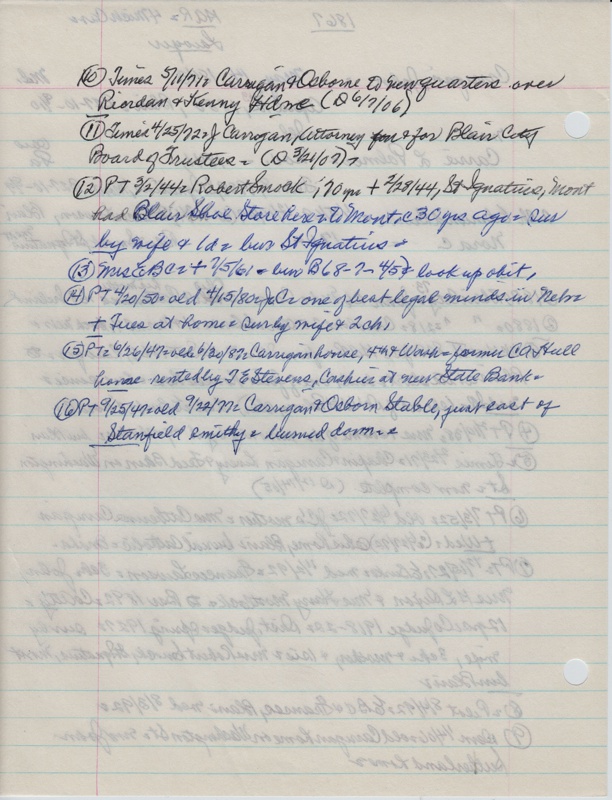 (10) Times 5/11/71= Carrigan & Osborne to new quarters over
Riordan & Kenny Hdne (O 6/7/06)
(11) Times 4/25/72= J Carrigan, Attorney for Blair City
Board of Trustees= (O 3/21/07)
(12) PT 3/2/44= Robert Smock, 70 yrs + 2/28/44, St Ignatius, Mont
had Blair Shoe Store here= to Mont. c 30 yrs ago= sur
by wife & 1d= bur St Ignatius
(13) Mrs EBC= + 7/5/61= bur B68-7-45 look up obit,
(14) PT 4/20/50= oed 4/15/80= JC= one of best legal minds in Nebr
+ Tues at home= sur by wife & 2 ch,
(15) PT= 6/26/47= oed 6/30/87= Carrigan house, 4th & Wash= former CA Hull
house rented by T E Stevens, Cashier at new State Bank=
(16) PT 9/25/47= oed 9/22/77= Carrigan & Osborn Stable, just east of
Stanfield smithy= burned down=